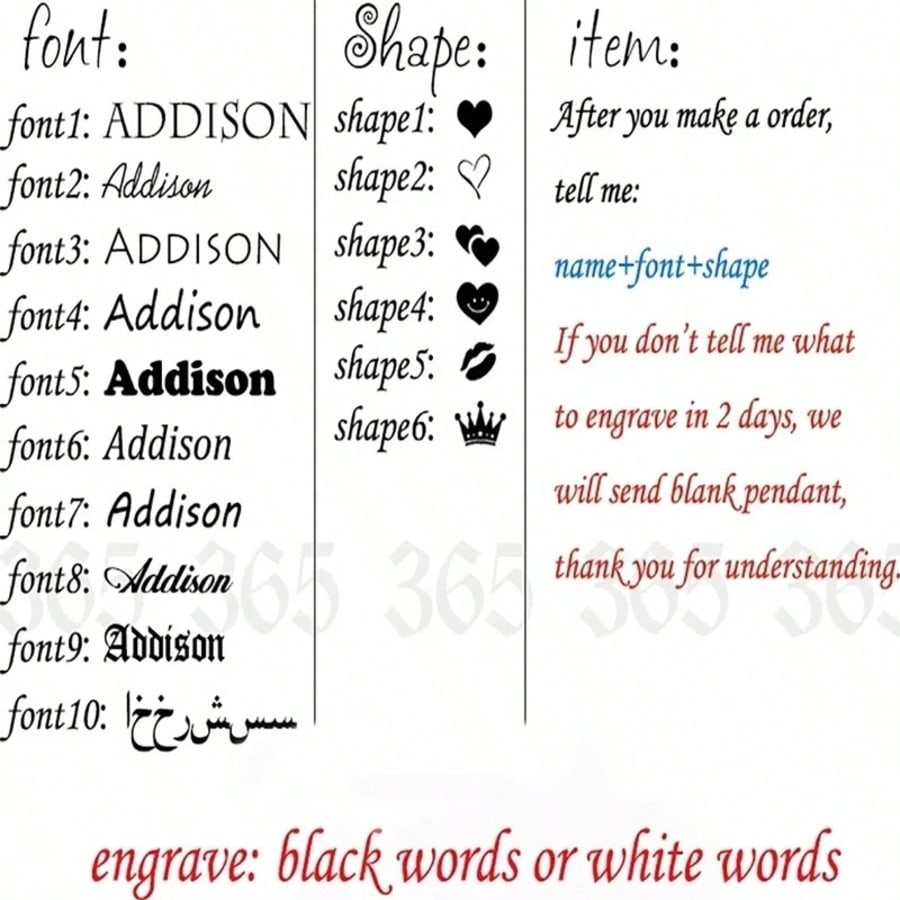 font:
font1: ADDISON
font2: Addison
font3: ADDISON
font4: Addison
font5: Addison
font6: Addison
font7: Addison
font8: Addison
font9: Addison
font10:
Shape:
shape1:
shape2:
shape3:
shape4:
shape5:
shape6:
item:
After you make a order,
tell me:
name+font+shape
If you don't tell me what
to engrave in 2 days, we
will send blank pendant,
thank you for understanding.
365 365 365 365 365
engrave: black words or white words